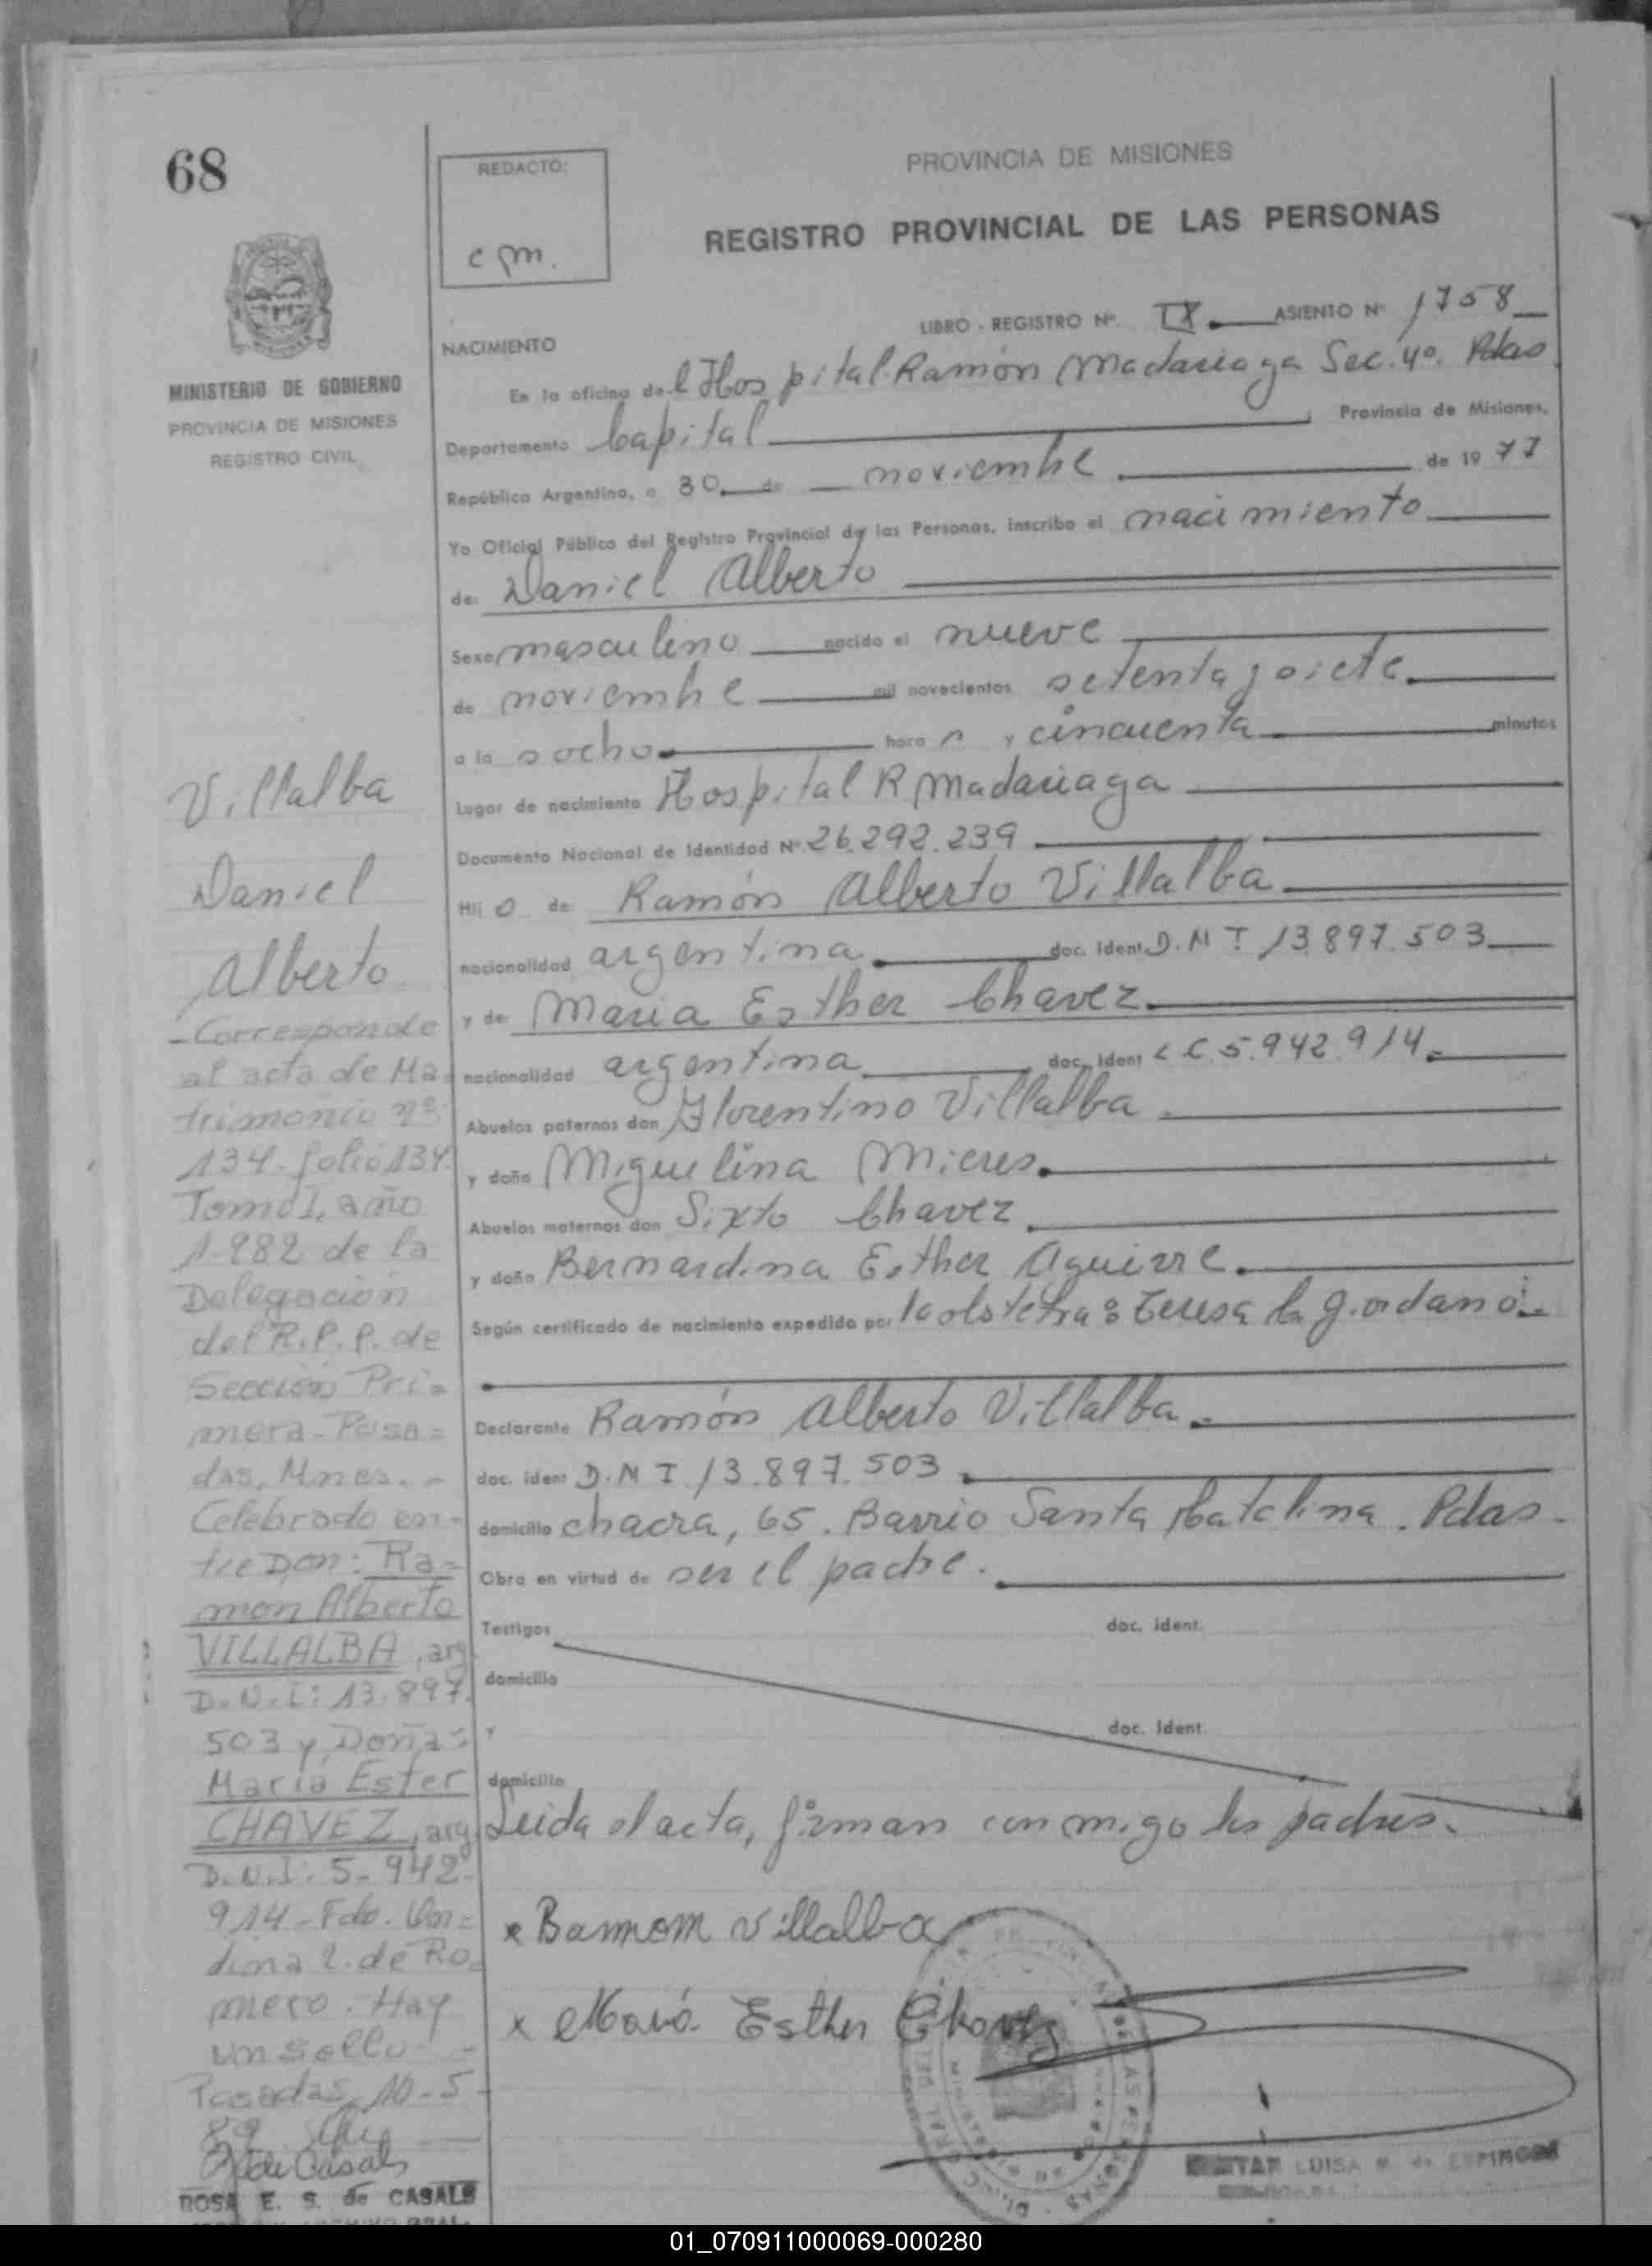 68
REDACTO:
c m.
PROVINCIA DE MISIONES
REGISTRO PROVINCIAL DE LAS PERSONAS
MINISTERIO DE GOBIERNO
PROVINCIA DE MISIONES
REGISTRO CIVIL
LIBRO - REGISTRO Nº. IX. ASIENTO Nº 1758
NACIMIENTO
En la oficina del Hospital Ramón Madariaga Sec. 4º. Pdas
Departamento Capital Provincia de Misiones,
República Argentina, a 30 de noviembre de 1977
Yo Oficial Público del Registro Provincial de las Personas, inscribo el nacimiento
de: Daniel Alberto
Sexo masculino nacido el nueve
de noviembre mil novecientos setenta y siete.
a la s ocho hora s y cincuenta minutos
Lugar de nacimiento Hospital R Madariaga
Documento Nacional de Identidad Nº 26.292.239
Hij o de Ramón Alberto Villalba
nacionalidad argentina doc. Ident D.N I 13.897.503
y de María Esther Chavez
nacionalidad argentina doc. ident L C. 5.942.914.
Abuelos paternos don Florentino Villalba
y doña Miguelina Mieres.
Abuelos maternos don Sixto Chavez
y doña Bernardina Esther Aguirre.
Según certificado de nacimiento expedido por la obstetra: Teresa
Declarante Ramón Alberto Villalba.
doc. ident D.N I 13.897.503
domicilio chacra, 65. Barrio Santa Catalina. Pdas.
Obra en virtud de ser el padre.
Testigos doc. ident.
domicilio
y doc. Ident.
domicilio
Leida el acta, firman conmigo los padres.
x Villalba
x Esther Chavez
Villalba
Daniel
Alberto
- Corresponde
al acta de Ma-
trimonio nº
134-folio 134.
Tomo I, año
1.982 de la
Delegación
del R.P.P. de
Sección Pri=
mera-Posa=
das, Mnes. -
Celebrado en-
tre Don: Ra=
mon Alberto
VILLALBA, arg
D.N.I: 13.897.
503 y Doña:
María Ester
CHAVEZ, arg
D.N.I: 5.942.
914-Fdo.
de Ro=
mero. Hay
un sello -
Posadas, 10-5-
89
de Casals
ROSA E. S. de CASALS
LUISA M. de ESPINOSA
01_070911000069-000280